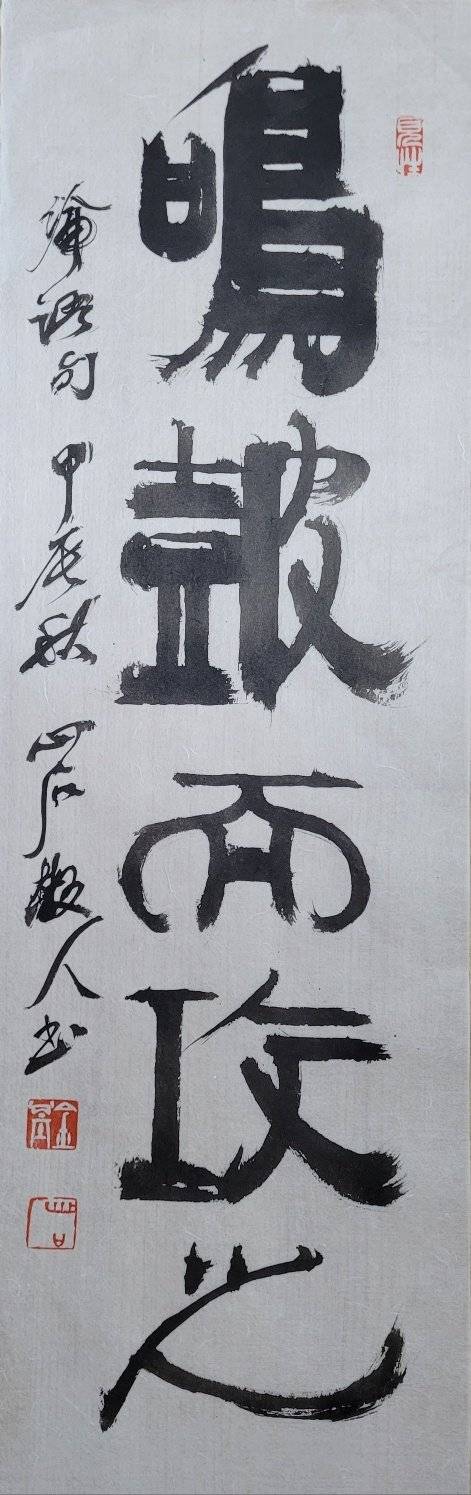 鳴皷而攻之
論語句 甲辰秋 山石散人书